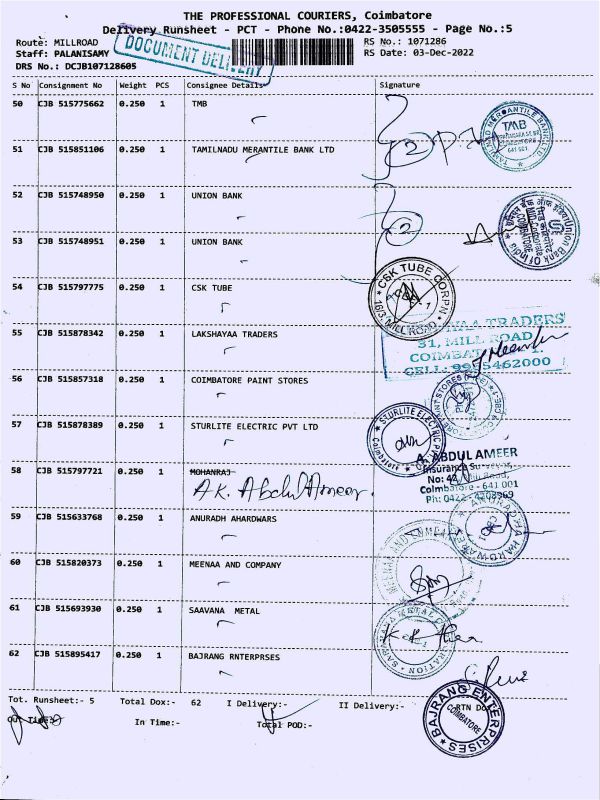 THE PROFESSIONAL COURIERS, Coimbatore
Delivery Runsheet - PCT - Phone No.:0422-3505555 - Page No.:5
Route: MILLROAD
RS No.: 1071286
Staff: PALANISAMY
RS Date: 03-Dec-2022
DRS No.: DCJB107128605
DOCUMENT DELIVERY
S No Consignment No Weight PCS Consignee Details Signature
50 CJB 515775662 0.250 1 TMB
TAMILNAD MERCANTILE BANK LTD
TMB
COIMBATORE
641 001
51 CJB 515851106 0.250 1 TAMILNADU MERANTILE BANK LTD
52 CJB 515748950 0.250 1 UNION BANK
Union Bank Of India
COIMBATORE
53 CJB 515748951 0.250 1 UNION BANK
54 CJB 515797775 0.250 1 CSK TUBE
CSK TUBE CORPN
163, MILL ROAD
55 CJB 515878342 0.250 1 LAKSHAYAA TRADERS
TRADERS
31, MILL ROAD
CELL: 462000
56 CJB 515857318 0.250 1 COIMBATORE PAINT STORES
57 CJB 515878389 0.250 1 STURLITE ELECTRIC PVT LTD
STURLITE ELECTRIC
Coimbatore
58 CJB 515797721 0.250 1 MOHANRAJ
A.K. Abdul Ameer.
A. ABDUL AMEER
Insurance Surveyor,
Mill Road,
Coimbatore - 641 001
Ph: 0422 - 4208969
59 CJB 515633768 0.250 1 ANURADH AHARDWARS
ANURADHA HARDWARE
60 CJB 515820373 0.250 1 MEENAA AND COMPANY
MEENAA AND COMPANY
61 CJB 515693930 0.250 1 SAAVANA METAL
METAL CORPORATION
62 CJB 515895417 0.250 1 BAJRANG RNTERPRSES
BAJRANG ENTERPRISES
COIMBATORE
Tot. Runsheet:- 5 Total Dox:- 62 I Delivery:- II Delivery:- RTN Dox
In Time:- Total POD:-